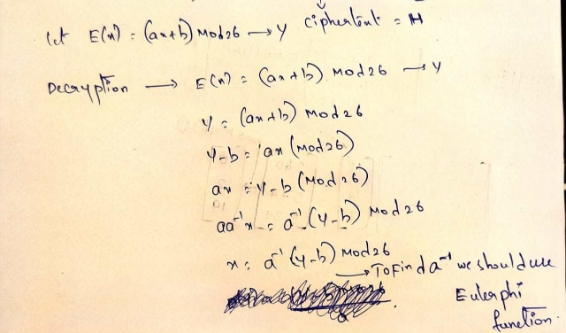 let E(x) = (ax+b) Mod26 → Y ciphertext = H
Decryption → E(x) = (ax+b) Mod26 → Y
Y = (ax+b) Mod26
Y-b = ax (Mod26)
ax = Y-b (Mod26)
aa⁻¹x = a⁻¹(Y-b) Mod26
x = a⁻¹(Y-b) Mod26
→ To Find a⁻¹ we should use
Euler phi
function.